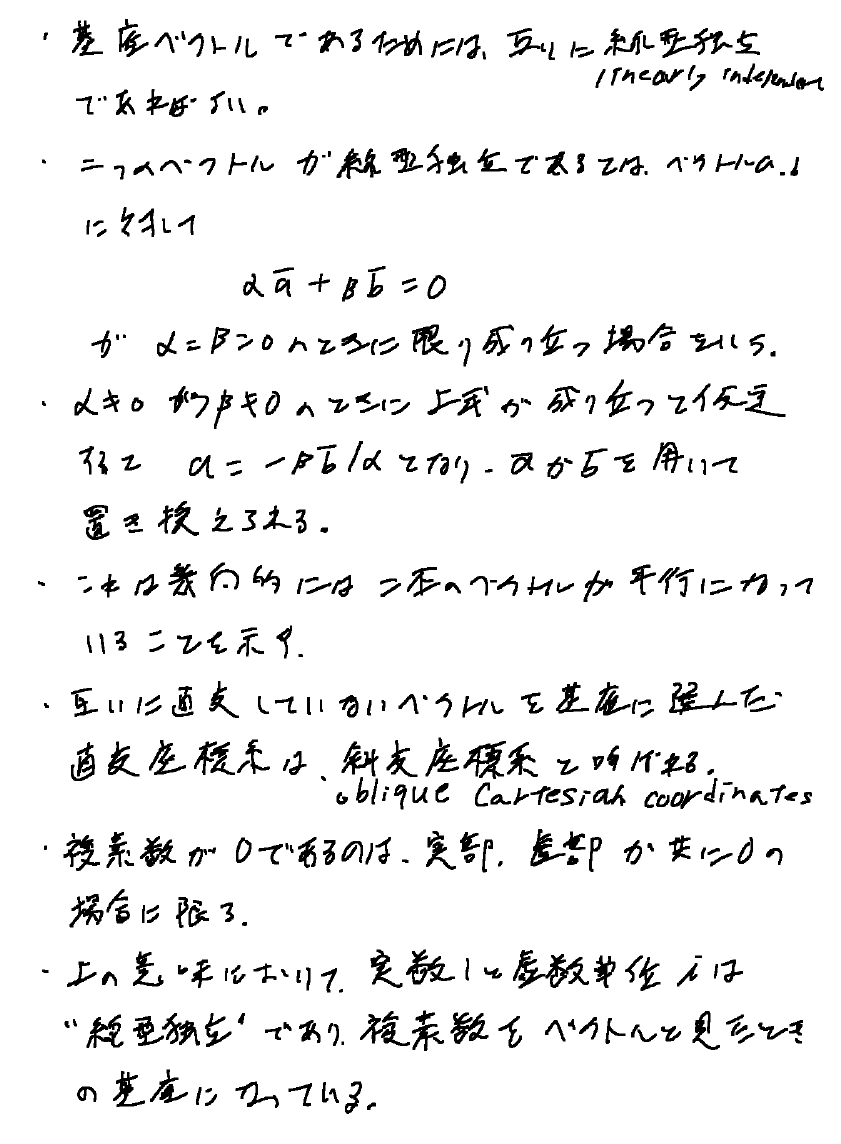 ・基底ベクトルであるためには、互いに線型独立
linearly independent
であればよい。
・二つのベクトルが線型独立であるとは、ベクトルa,b
に対して
αa̅ + βb̅ = 0
が α=β=0 のときに限り成り立つ場合をいう.
・α≠0 かつ β≠0 のときに上式が成り立つと仮定
すると a = -βb̅/α となり、a̅がb̅を用いて
置き換えられる。
・これは幾何的には二本のベクトルが平行になって
いることを示す.
・互いに直交していないベクトルを基底に選んだ
直交座標系は、斜交座標系と呼ばれる.
oblique Cartesian coordinates
・複素数が0であるのは、実部,虚部が共に0の
場合に限る.
・上の意味において、実数1と虚数単位iは
"線型独立"であり、複素数をベクトルと見たとき
の基底になっている.